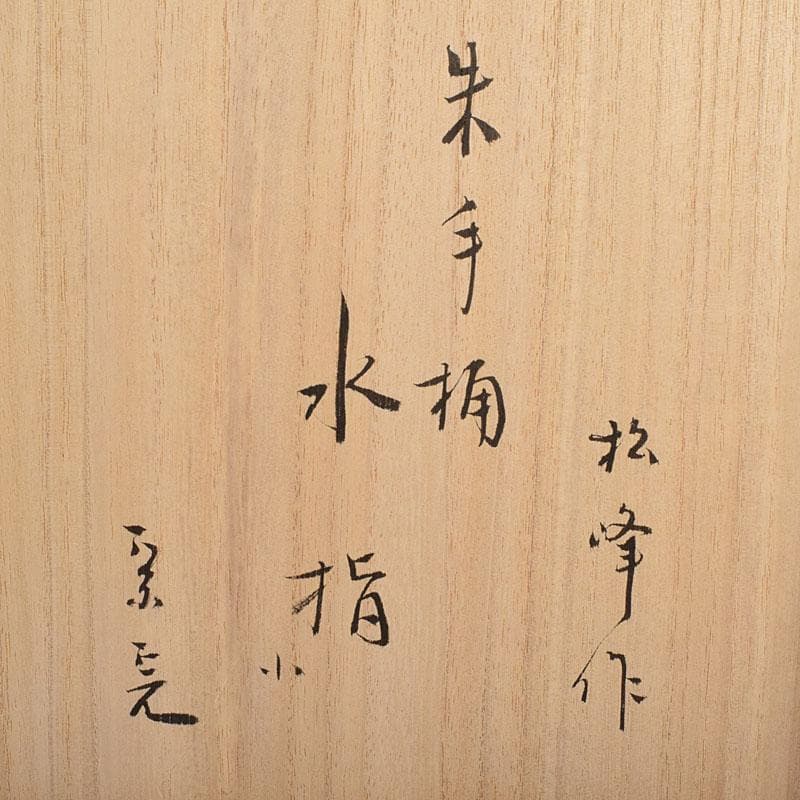 松峰作
朱手桶
水指
小